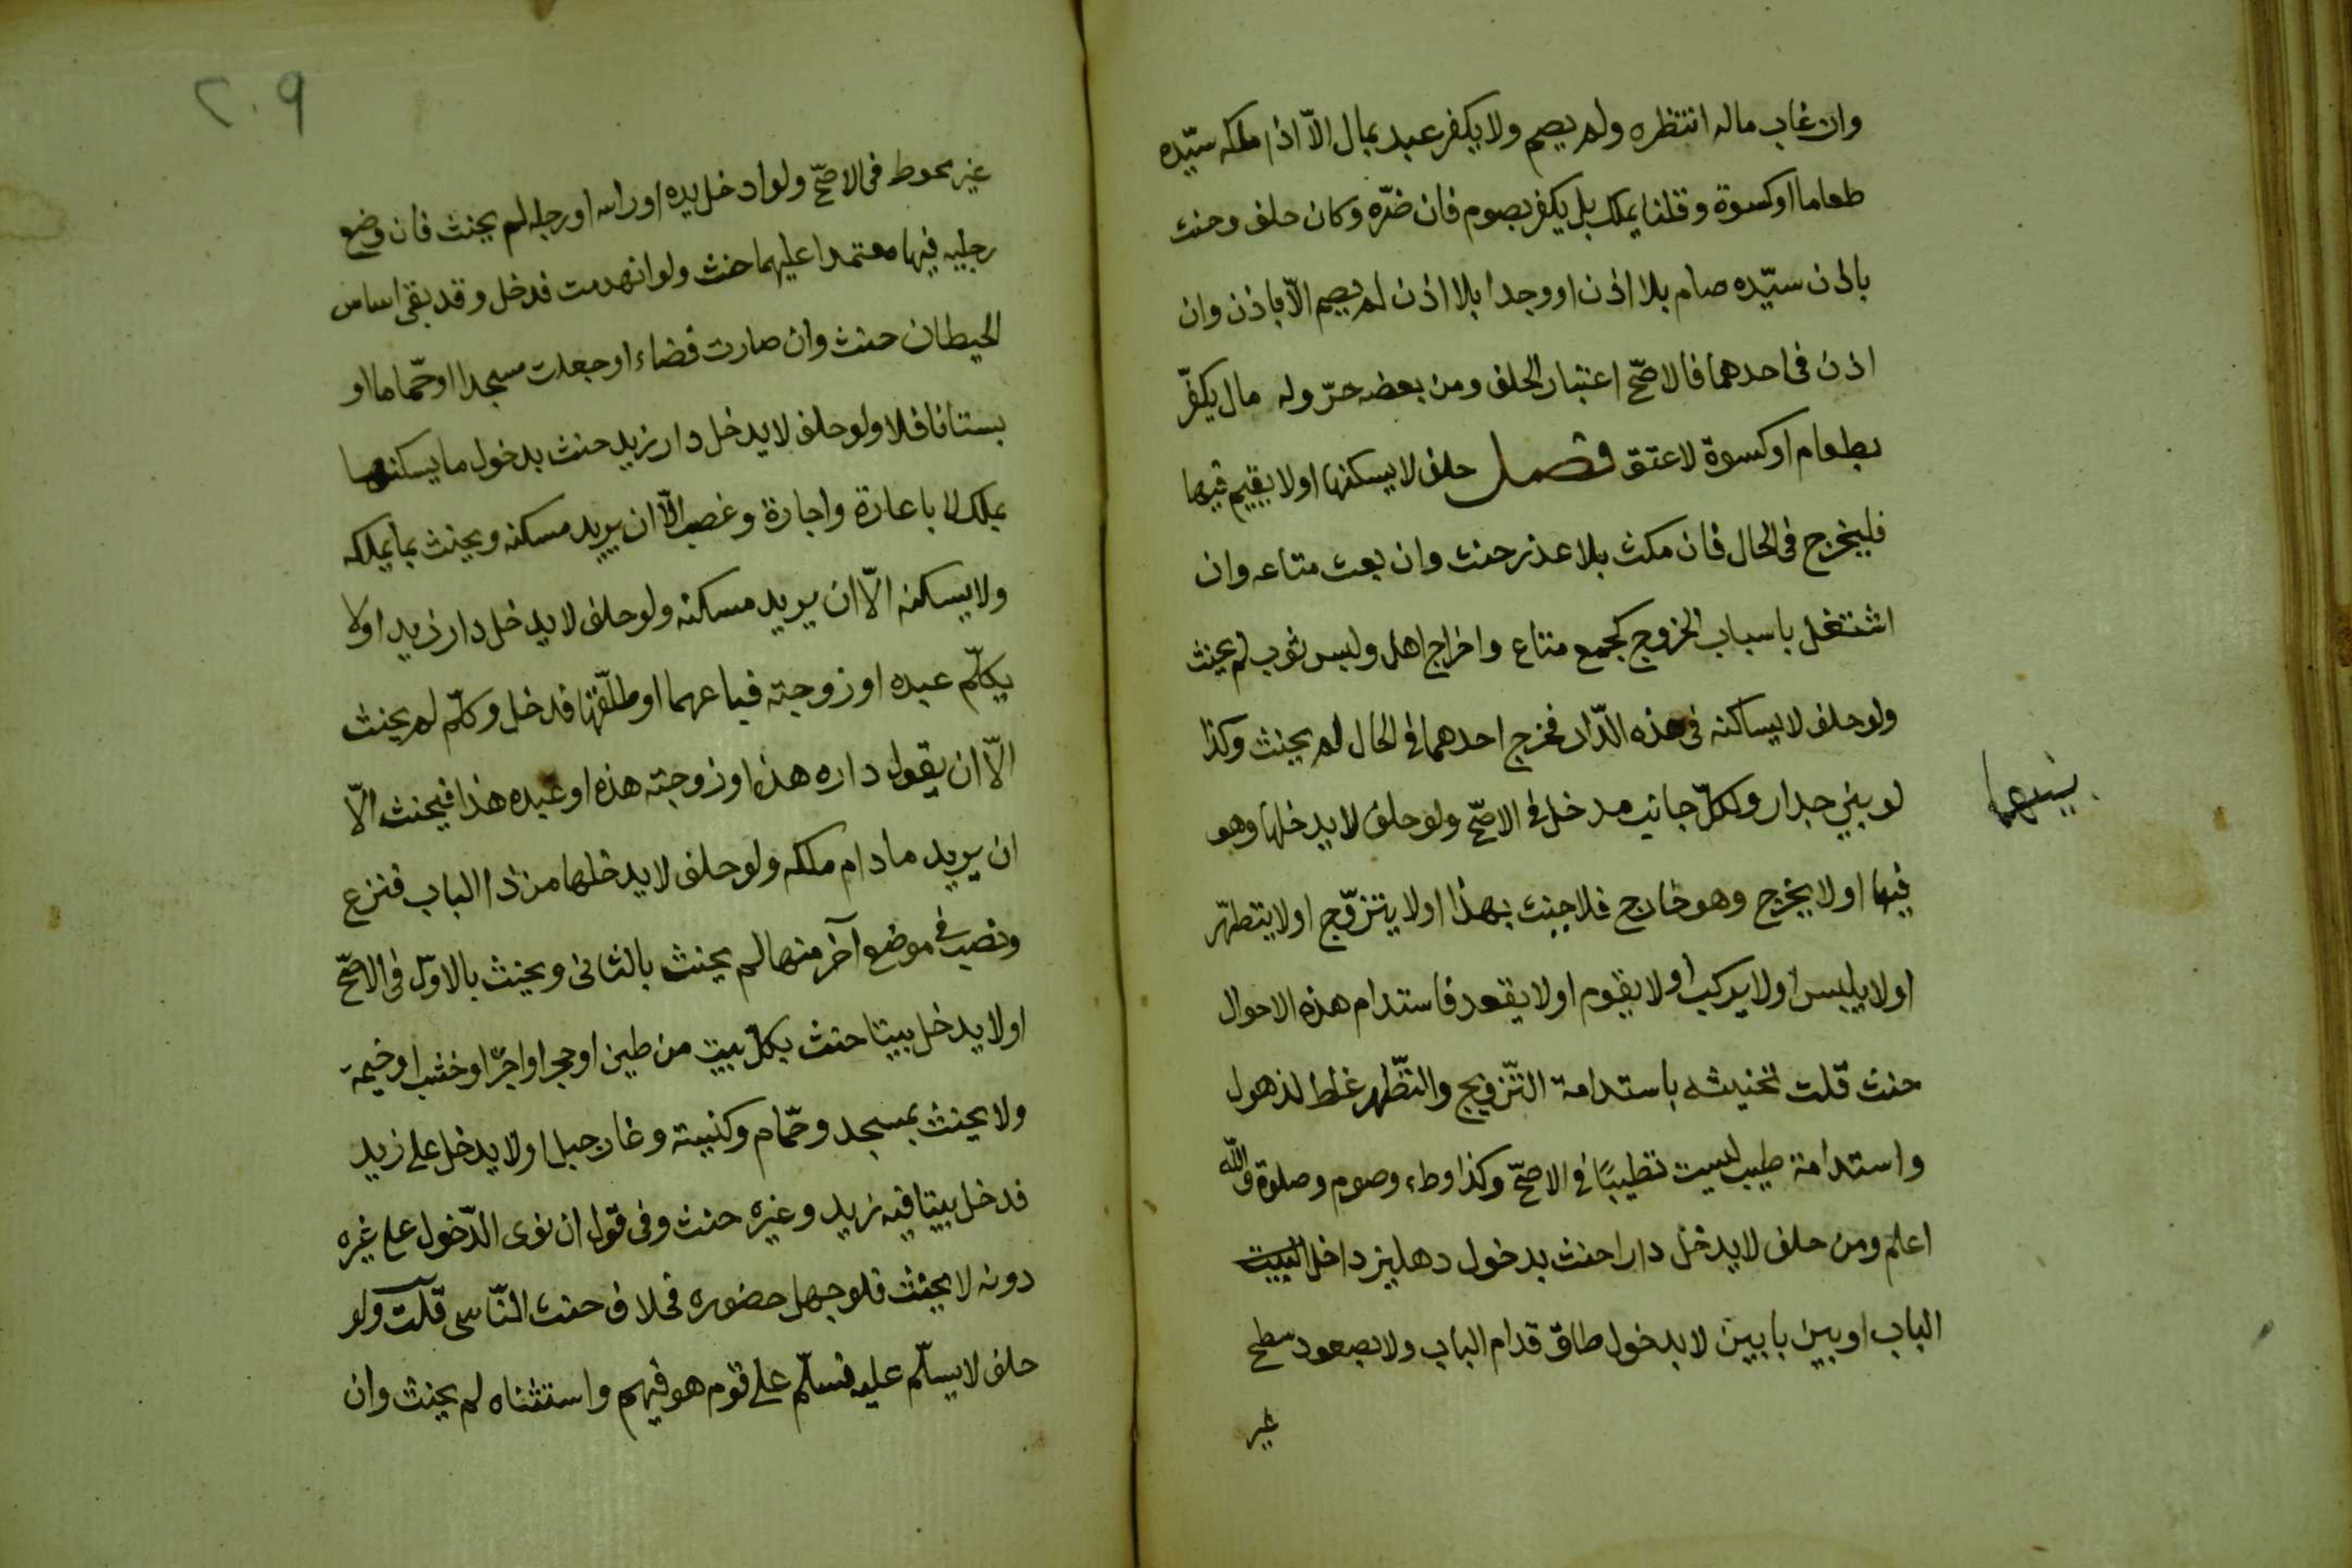 وان غاب ماله انتظره ولم يصم ولا يكفر عبد بمال الّا اذا ملكه سيّده
طعاما او كسوة وقلنا يملك بل يكفر بصوم فان ضرّه وكان حلف وحنث
باذن سيّده صام بلا اذن او وجدا بلا اذن لم يصم الّا باذن وان
اذن فى احدهما فالاصحّ اعتبار الحلف ومن بعضه حرّ وله مال يكفّر
بطعام او كسوة لا عتق فصل حلف لا يسكنها او لا يقيم فيها
فليخرج فى الحال فان مكث بلا عذر حنث وان بعث متاعه وان
اشتغل باسباب الخروج كجمع متاع واخراج اهل ولبس ثوب لم يحنث
ولو حلف لا يساكنه فى هذه الدّار فخرج احدهما فى الحال لم يحنث وكذا
لو بنى جدار ولكلّ جانب مدخل فى الاصحّ ولو حلف لا يدخلها وهو
بينهما
فيها او لا يخرج وهو خارج فلا حنث بهذا او لا يتزوّج او لا يتطهّر
او لا يلبس او لا يركب او لا يقوم او لا يقعد فاستدام هذه الاحوال
حنث قلت تحنيثه باستدامة التّزويج والتّطهر غلط لذهول
واستدامة طيب ليست تطيبًا فى الاصحّ وكذا وطء وصوم وصلوة والله
اعلم ومن حلف لا يدخل دارا حنث بدخول دهليز داخل البيت
الباب او بين بابين لا بدخول طاق قدام الباب ولا بصعود سطح
غير
٢٠٩
غير محوط فى الاصحّ ولو ادخل يده او راسه او رجله لم يحنث فان وضع
رجليه فيها معتمدا عليهما حنث ولو انهدمت فدخل وقد بقى اساس
الحيطان حنث وان صارت فضاء او جعلت مسجدا او حمّاما او
بستانا فلا ولو حلف لا يدخل دار زيد حنث بدخول ما يسكنها
بملك لا باعارة واجارة وغصب الّا ان يريد مسكنه ويحنث بما يملكه
ولا يسكنه الّا ان يريد مسكنه ولو حلف لا يدخل دار زيد او لا
يكلّم عبده او زوجته فباعهما او طلّقها فدخل وكلّم لم يحنث
الّا ان يقول داره هذه او زوجته هذه او عبده هذا فيحنث الّا
ان يريد مادام ملكه ولو حلف لا يدخلها من ذا الباب فنزع
ونصب فى موضع آخر منها لم يحنث بالثانى ويحنث بالاوّل فى الاصحّ
او لا يدخل بيتا حنث بكلّ بيت من طين او حجر او اجرّ او خشب او خيمة
ولا يحنث بمسجد وحمّام وكنيسة وغار جبل او لا يدخل على زيد
فدخل بيتا فيه زيد وغيره حنث وفى قول ان نوى الدّخول على غيره
دونه لا يحنث فلو جهل حضوره فخلاف حنث النّاسى قلت ولو
حلف لا يسلّم عليه فسلّم على قوم هو فيهم واستثناه لم يحنث وان